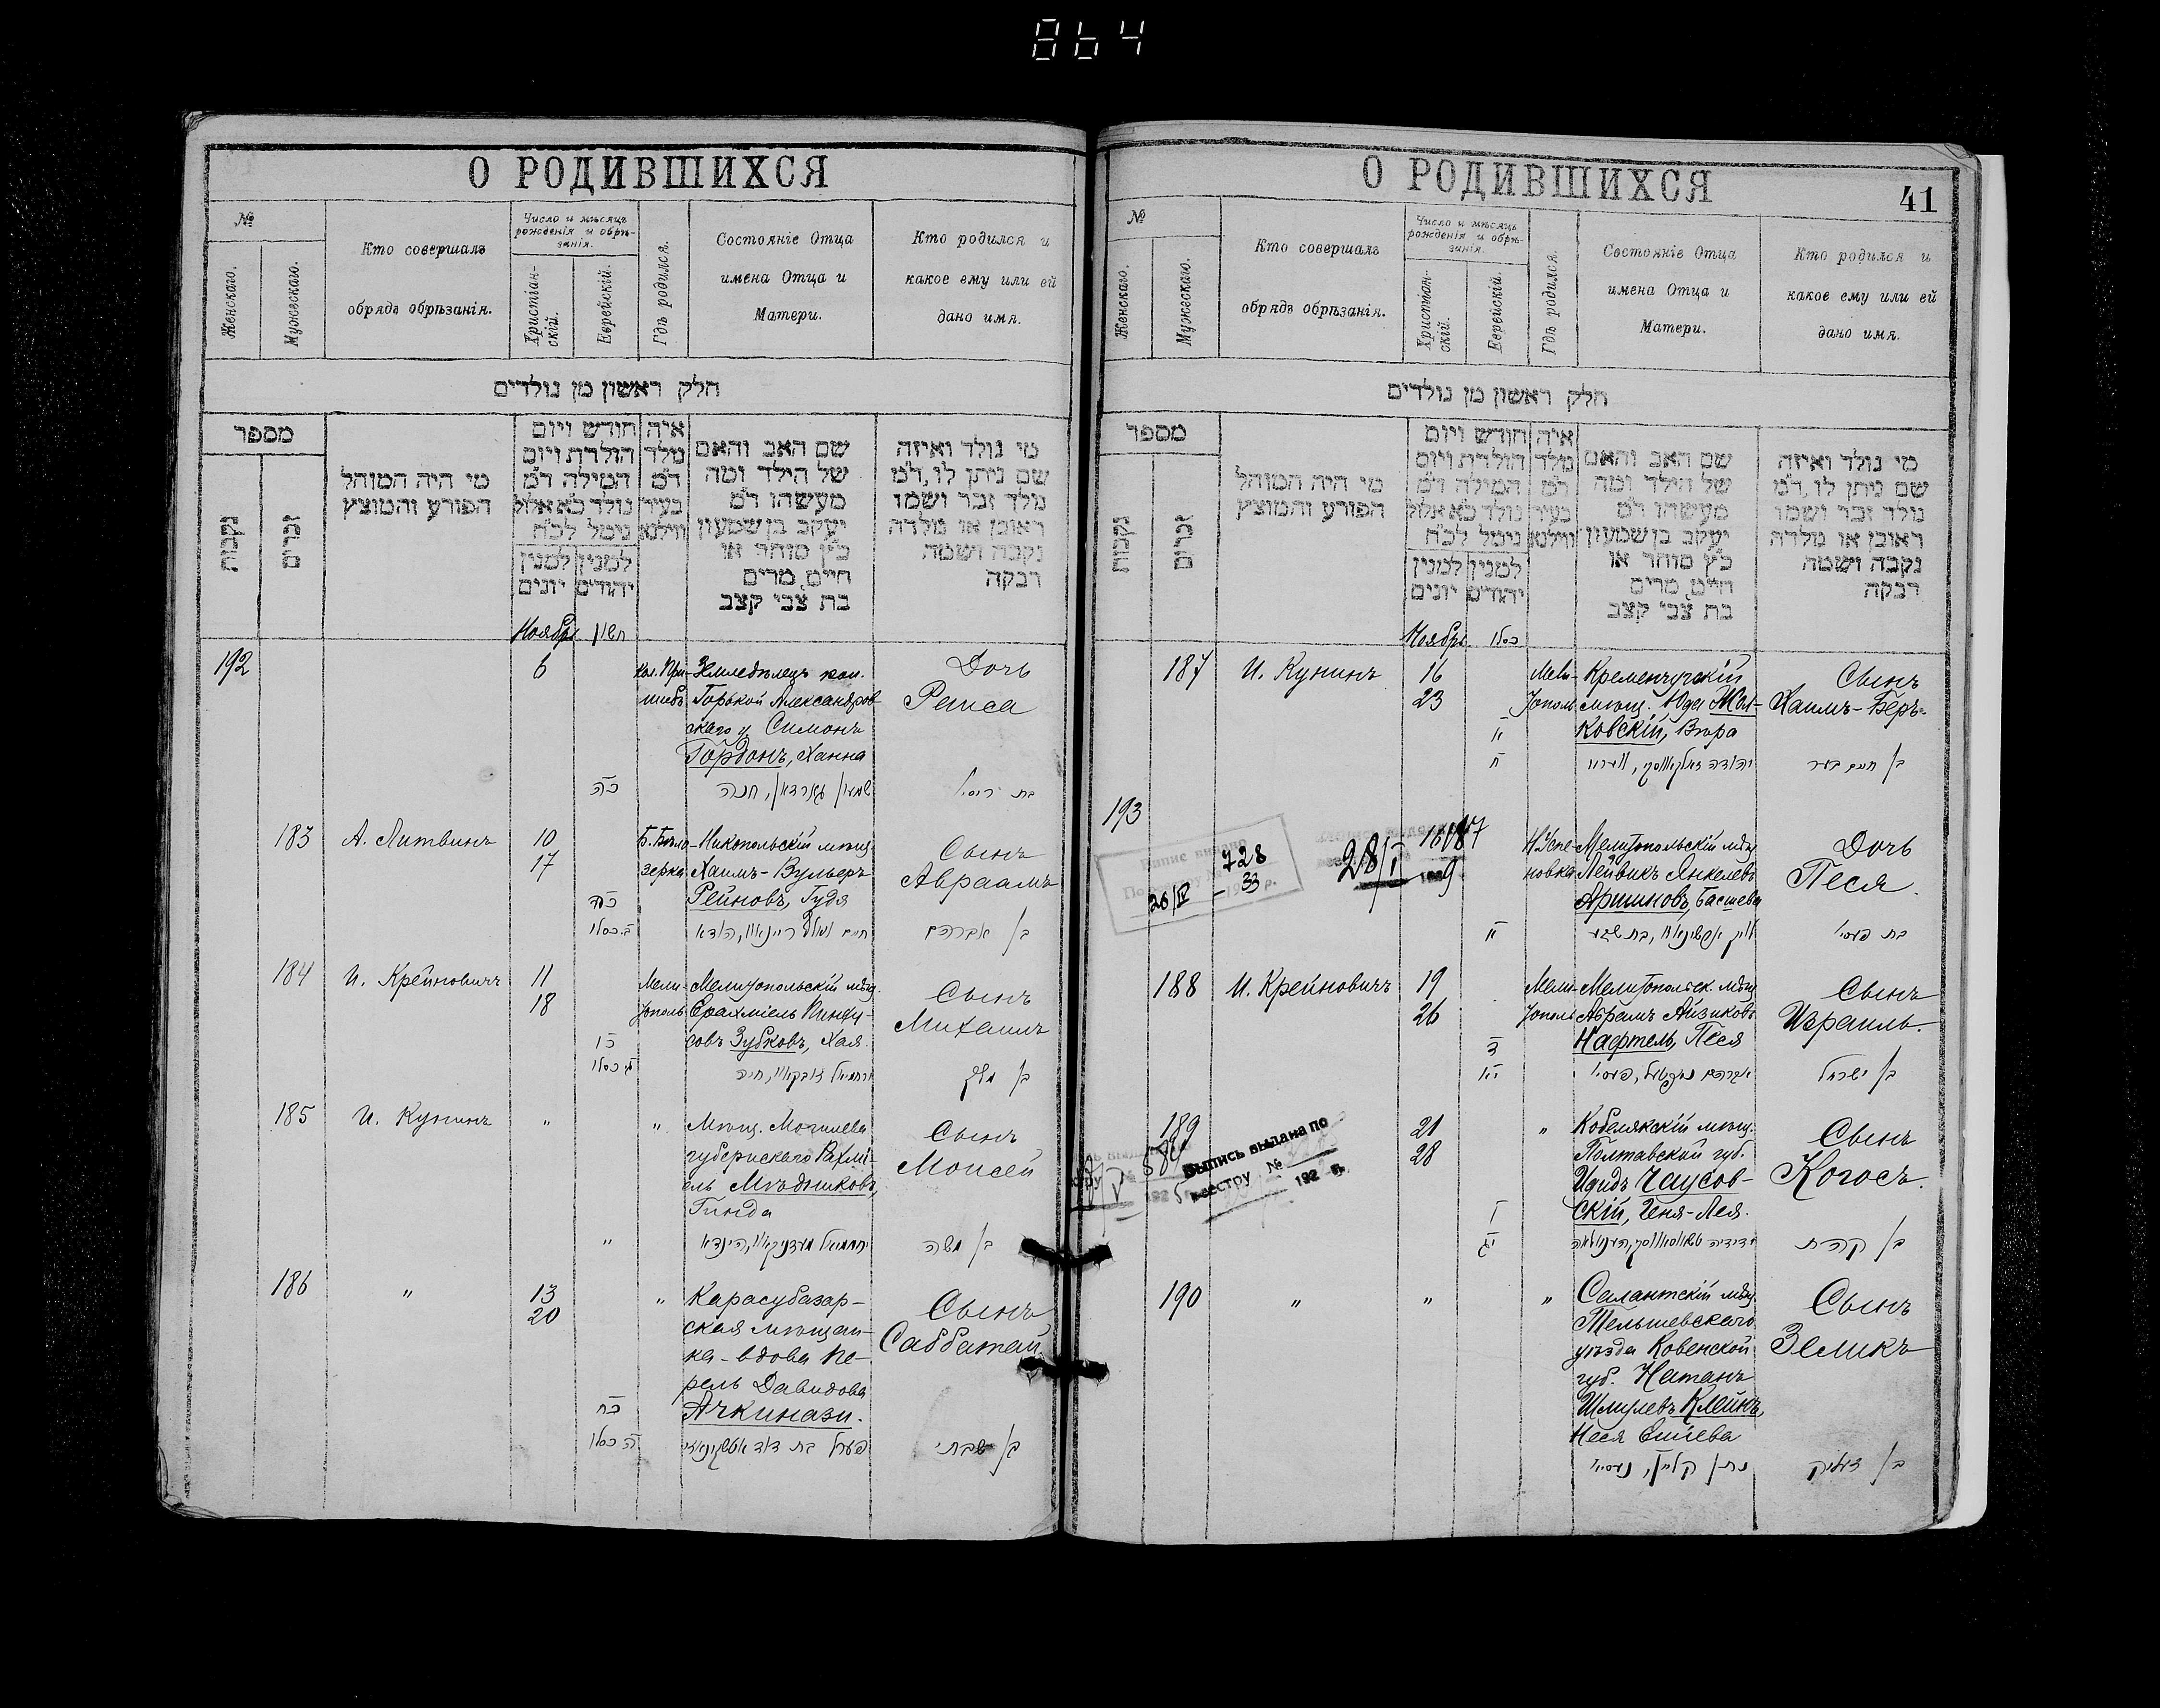 864
О РОДИВШИХСЯ
№
Женскаго.
Мужескаго.
Кто совершалъ
обрядъ обрѣзанія.
Число и мѣсяцъ
рожденія и обрѣ-
занія.
Христіан-
скій.
Еврейскій.
Гдѣ родился.
Состояніе Отца
имена Отца и
Матери.
Кто родился и
какое ему или ей
дано имя.
חלק ראשון מן נולדים
מספר
נקבות
זכרים
מי היה המוהל
הפורע והמוצץ
חודש ויום
הולדת ויום
המילה ד״מ
נולד כ״א אלול
נימול לכ״ח
למנין
יהודים
למנין
יונים
איה
נולד
ד״מ
בעיר
ווילנא
שם האב והאם
של הילד ומה
מעשהו ד״מ
יעקב בן שמעון
כ״ץ סוחר או
חייט, מרים
בת צבי קצב
מי נולד ואיזה
שם ניתן לו, ד״מ
נולד זכר ושמו
ראובן או נולדה
נקבה ושמה
רבקה
Ноябрь חשון
192
6
Кол. При-
шибъ
Земледѣлецъ кол.
Горькой Александров-
скаго у. Симонъ
Гордонъ, Ханна
Дочь
Раиса
כ״ה
שמעון גארדאן, חנה
183 А. Литвинъ
10
17
Б. Бѣло-
зерка
Никопольскій мѣщ.
Хаимъ-Вульеръ
Рейновъ, Гудя
Сынъ
Авраамъ
בן אברהם
184 И. Крейновичъ
11
18
Мели-
тополь
Мелитопольскій мѣщ.
Ерахміель Пинху-
совъ Зубковъ, Хая
Сынъ
Михаилъ
185 И. Кунинъ
"
"
Мѣщ. Могилева
губернскаго Рахми-
ель Мѣдниковъ,
Гинда
Сынъ
Моисей
"
בן משה
186 "
13
20
"
Карасубазар-
ская мѣщан-
ка-вдова Пе-
рель Давидова
Ачкинази.
Сынъ
Саббатай
כ״ח
בן שבתי
О РОДИВШИХСЯ
41
№
Женскаго.
Мужескаго.
Кто совершалъ
обрядъ обрѣзанія.
Число и мѣсяцъ
рожденія и обрѣ-
занія.
Христіан-
скій.
Еврейскій.
Гдѣ родился.
Состояніе Отца
имена Отца и
Матери.
Кто родился и
какое ему или ей
дано имя.
חלק ראשון מן נולדים
מספר
נקבות
זכרים
מי היה המוהל
הפורע והמוצץ
חודש ויום
הולדת ויום
המילה ד״מ
נולד כ״א אלול
נימול לכ״ח
למנין
יהודים
למנין
יונים
איה
נולד
ד״מ
בעיר
ווילנא
שם האב והאם
של הילד ומה
מעשהו ד״מ
יעקב בן שמעון
כ״ץ סוחר או
חייט, מרים
בת צבי קצב
מי נולד ואיזה
שם ניתן לו, ד״מ
נולד זכר ושמו
ראובן או נולדה
נקבה ושמה
רבקה
Ноябрь כסלו
187 И. Кунинъ
16
23
Мели-
тополь
Кременчугскій
мѣщ. Юда Мал-
ковскій, Вѣра
Сынъ
Хаимъ-Беръ
בן חיים בער
193
728
33
26/IV
28/I
Мелитопольскій мѣщ.
Лейвикъ Янкелевъ
Аршиновъ, Басшева
Дочь
Песя.
188 И. Крейновичъ
19
26
Мели-
тополь
Мелитопольск. мѣщ.
Абрамъ Айзиковъ
Нафтель, Песя
Сынъ
Израиль.
בן ישראל
189
Выпись выдана по
реестру №
192 г.
21
28
"
Кобелякскій мѣщ.
Полтавской губ.
Идидъ Чаусов-
скій, Геня-Лея.
Сынъ
Когосъ.
בן קהת
190 "
"
"
Салантскій мѣщ.
Тельшевскаго
уѣзда Ковенской
губ. Натанъ
Шмулевъ Клейнъ,
Неся
Сынъ
Зеликъ
בן זעליק